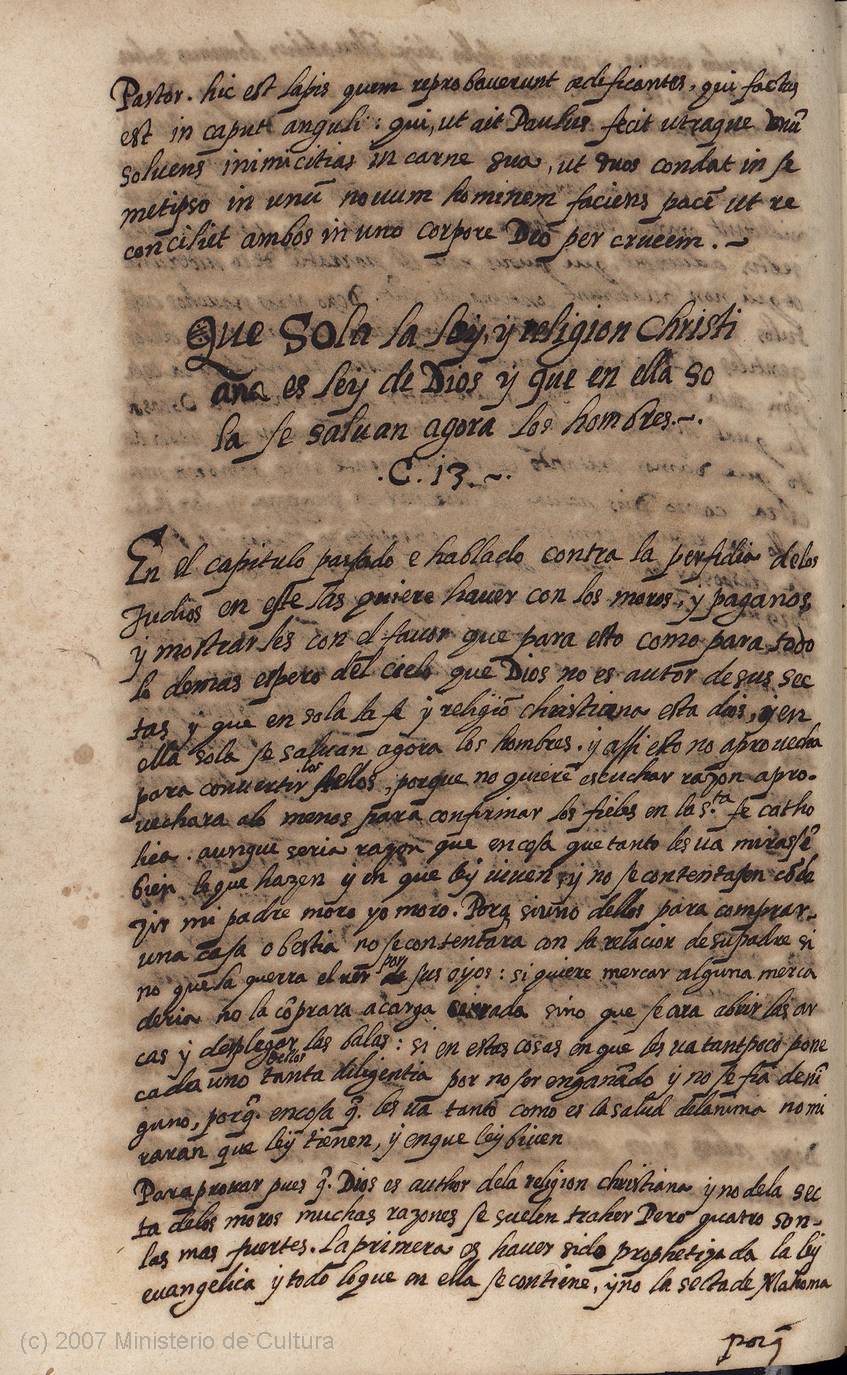 Pastor. hic est lapis quem reprobauerunt ædificantes, qui factus
est in caput anguli: qui, ut ait Paulus fecit utraque vnũ
soluens inimicitias in carne sua, ut duos condat in se
metipso in unũ nouum hominem faciens pacẽ ut re
conciliet ambos in uno corpore Deo per crucem. ~
Que Sola la ley, y religion Christi
ana es ley de Dios y que en ella so
la se saluan agora los hombres. ~.
.C. 13. ~.
En el capitulo passado e hablado contra la perfidia delos
Judios en este las quiere hauer con los moros, y paganos,
y mostrarles con el fauor que para esto como para todo
lo demas espero del cielo que Dios no es autor de sus sec
tas y que en sola la fe y religiõ christiana esta dios, y en
ella sola se saluan agora los hombres. y assi esto no aprouecha
para conuertir los dellos, porque no quierẽ escuchar razon apro-
uechara alo menos para confirmar los fieles en la s.ta fe catho
lica. aunque seria razon que en cosa que tanto les ua mirassẽ
bien lo que hazen y en que ley uiuen, y no se contentasen cõ de
zir mi padre moro yo moro. Porq̃ si uno dellos para comprar
una casa o bestia no se contentara con la relacion de su padre si
no que la querra el uer por sus ojos: si quiere mercar alguna merca
deria no la cõprara a carga cerrada sino que se ara abrir las ar
cas y desplegar las balas: si en estas cosas en que les ua tan poco pone
cada uno dellos tanta diligentia por no ser engañado y no se fia de nĩ
guno, porq̃. en cosa q̃. les ua tanto como es la salud del anima no mi
raran que ley tienen, y en que ley biuen
Para prouar pues q̃. Dios es author dela religion christiana y no dela sec
ta delos moros muchas razones se suelen traher Pero quatro son
las mas fuertes. La primera es hauer sido prophetizada la ley
euangelica y todo lo que en ella se contiene, y no la secta de Mahoma
porq̃
(c) 2007 Ministerio de Cultura